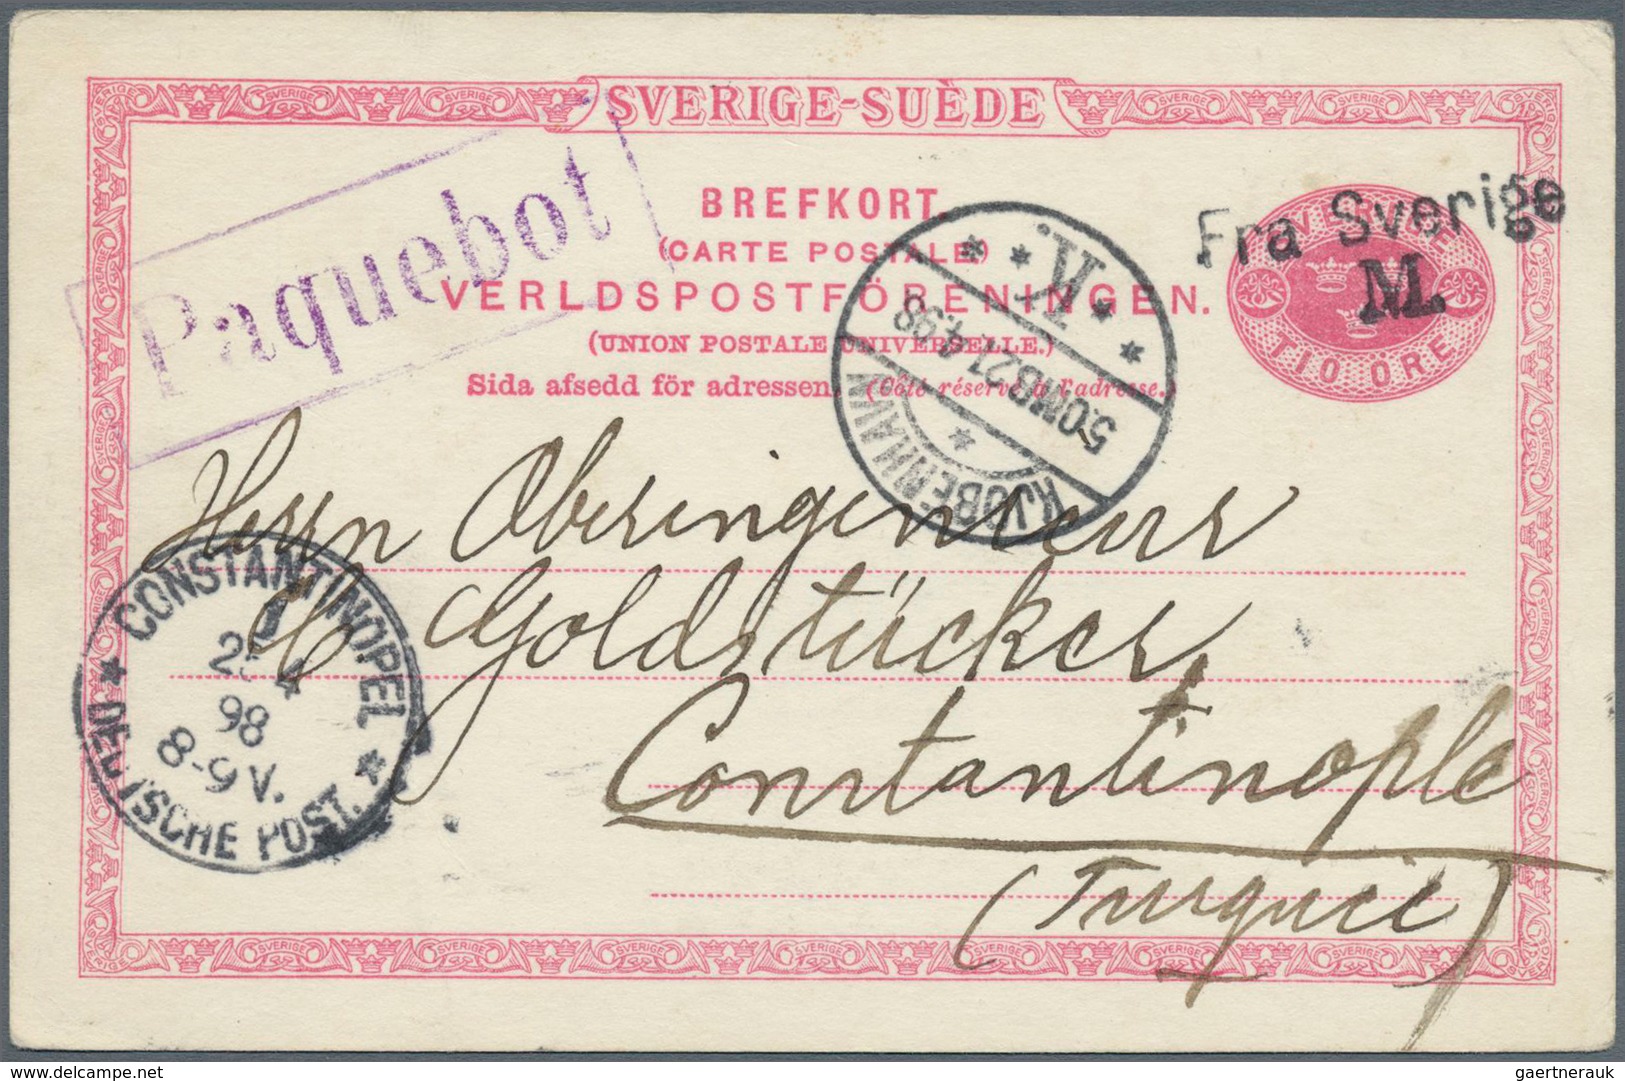 SVERIGE-SUÈDE
BREFKORT.
(CARTE POSTALE)
VERLDSPOSTFÖRENINGEN.
(UNION POSTALE UNIVERSELLE.)
Sida afsedd för adressen. (Côté réservé à l'adresse.)
Paquebot
Fra Sverige
M.
SVERIGE
TIO ÖRE
K.
5.OMB.21.4.98
KJØBENHAVN
Herrn Oberingenieur
Goldstücker
Constantinople
(Turquie)
CONSTANTINOPEL
4
98
8-9 V.
DEUTSCHE POST.
© www.delcampe.net
gaertnerauk